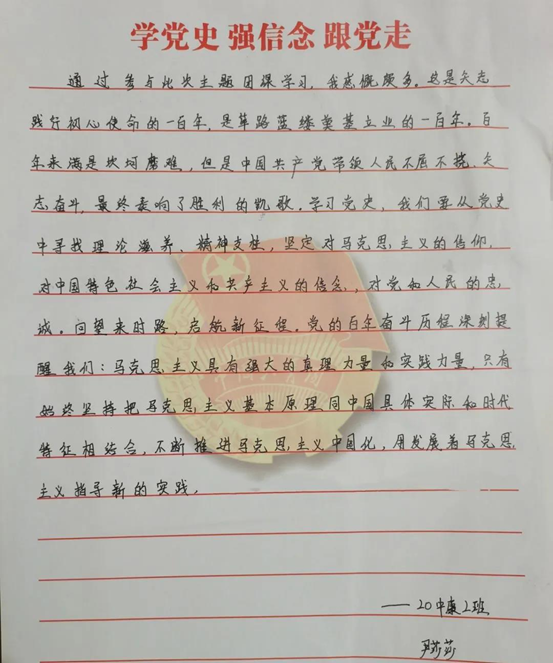 学党史 强信念 跟党走
通过参与此次主题团课学习，我感慨颇多。这是矢志
践行初心使命的一百年，是筚路蓝缕奠基立业的一百年。百
年来满是坎坷磨难，但是中国共产党带领人民不屈不挠、矢
志奋斗，最终奏响了胜利的凯歌。学习党史，我们要从党史
中寻找理论滋养、精神支柱，坚定对马克思主义的信仰，
对中国特色社会主义和共产主义的信念，对党和人民的忠
诚。回望来时路，启航新征程。党的百年奋斗历程深刻提
醒我们：马克思主义具有强大的真理力量和实践力量，只有
始终坚持把马克思主义基本原理同中国具体实际和时代
特征相结合，不断推进马克思主义中国化，用发展着马克思
主义指导新的实践。
——20中康2班
莎莎